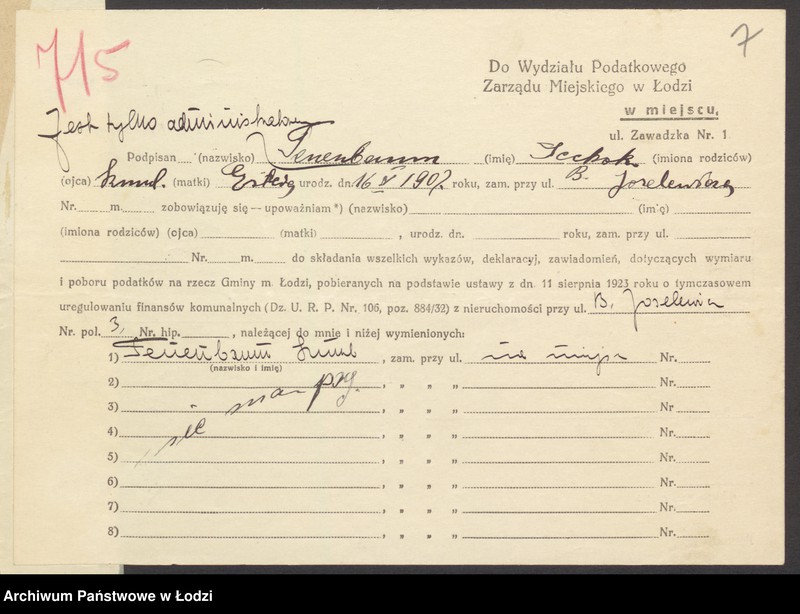 7/5
7
Do Wydziału Podatkowego
Zarządu Miejskiego w Łodzi
w miejscu,
ul. Zawadzka Nr. 1
Jest tylko administratorem
Podpisan (nazwisko) Tenenbaum (imię) (imiona rodziców)
(ojca) (matki) urodz. dn. 16 V 1907 roku, zam. przy ul. B. Joselewicza
Nr. m. zobowiązuję się — upoważniam *) (nazwisko) (imię)
(imiona rodziców) (ojca) (matki) , urodz. dn. roku, zam. przy ul.
Nr. m. do składania wszelkich wykazów, deklaracyj, zawiadomień, dotyczących wymiaru
i poboru podatków na rzecz Gminy m. Łodzi, pobieranych na podstawie ustawy z dn. 11 sierpnia 1923 roku o tymczasowem
uregulowaniu finansów komunalnych (Dz. U. R. P. Nr. 106, poz. 884/32) z nieruchomości przy ul. B. Joselewicza
Nr. pol. 3, Nr. hip. , należącej do mnie i niżej wymienionych:
1) Tenenbaum , zam. przy ul. Nr.
(nazwisko i imię)
2) , „ „ „ Nr.
3) , „ „ „ Nr
4) , „ „ „ Nr.
5) , „ „ „ Nr.
6) , „ „ „ Nr.
7) , „ „ „ Nr.
8) , „ „ „ Nr.
Archiwum Państwowe w Łodzi